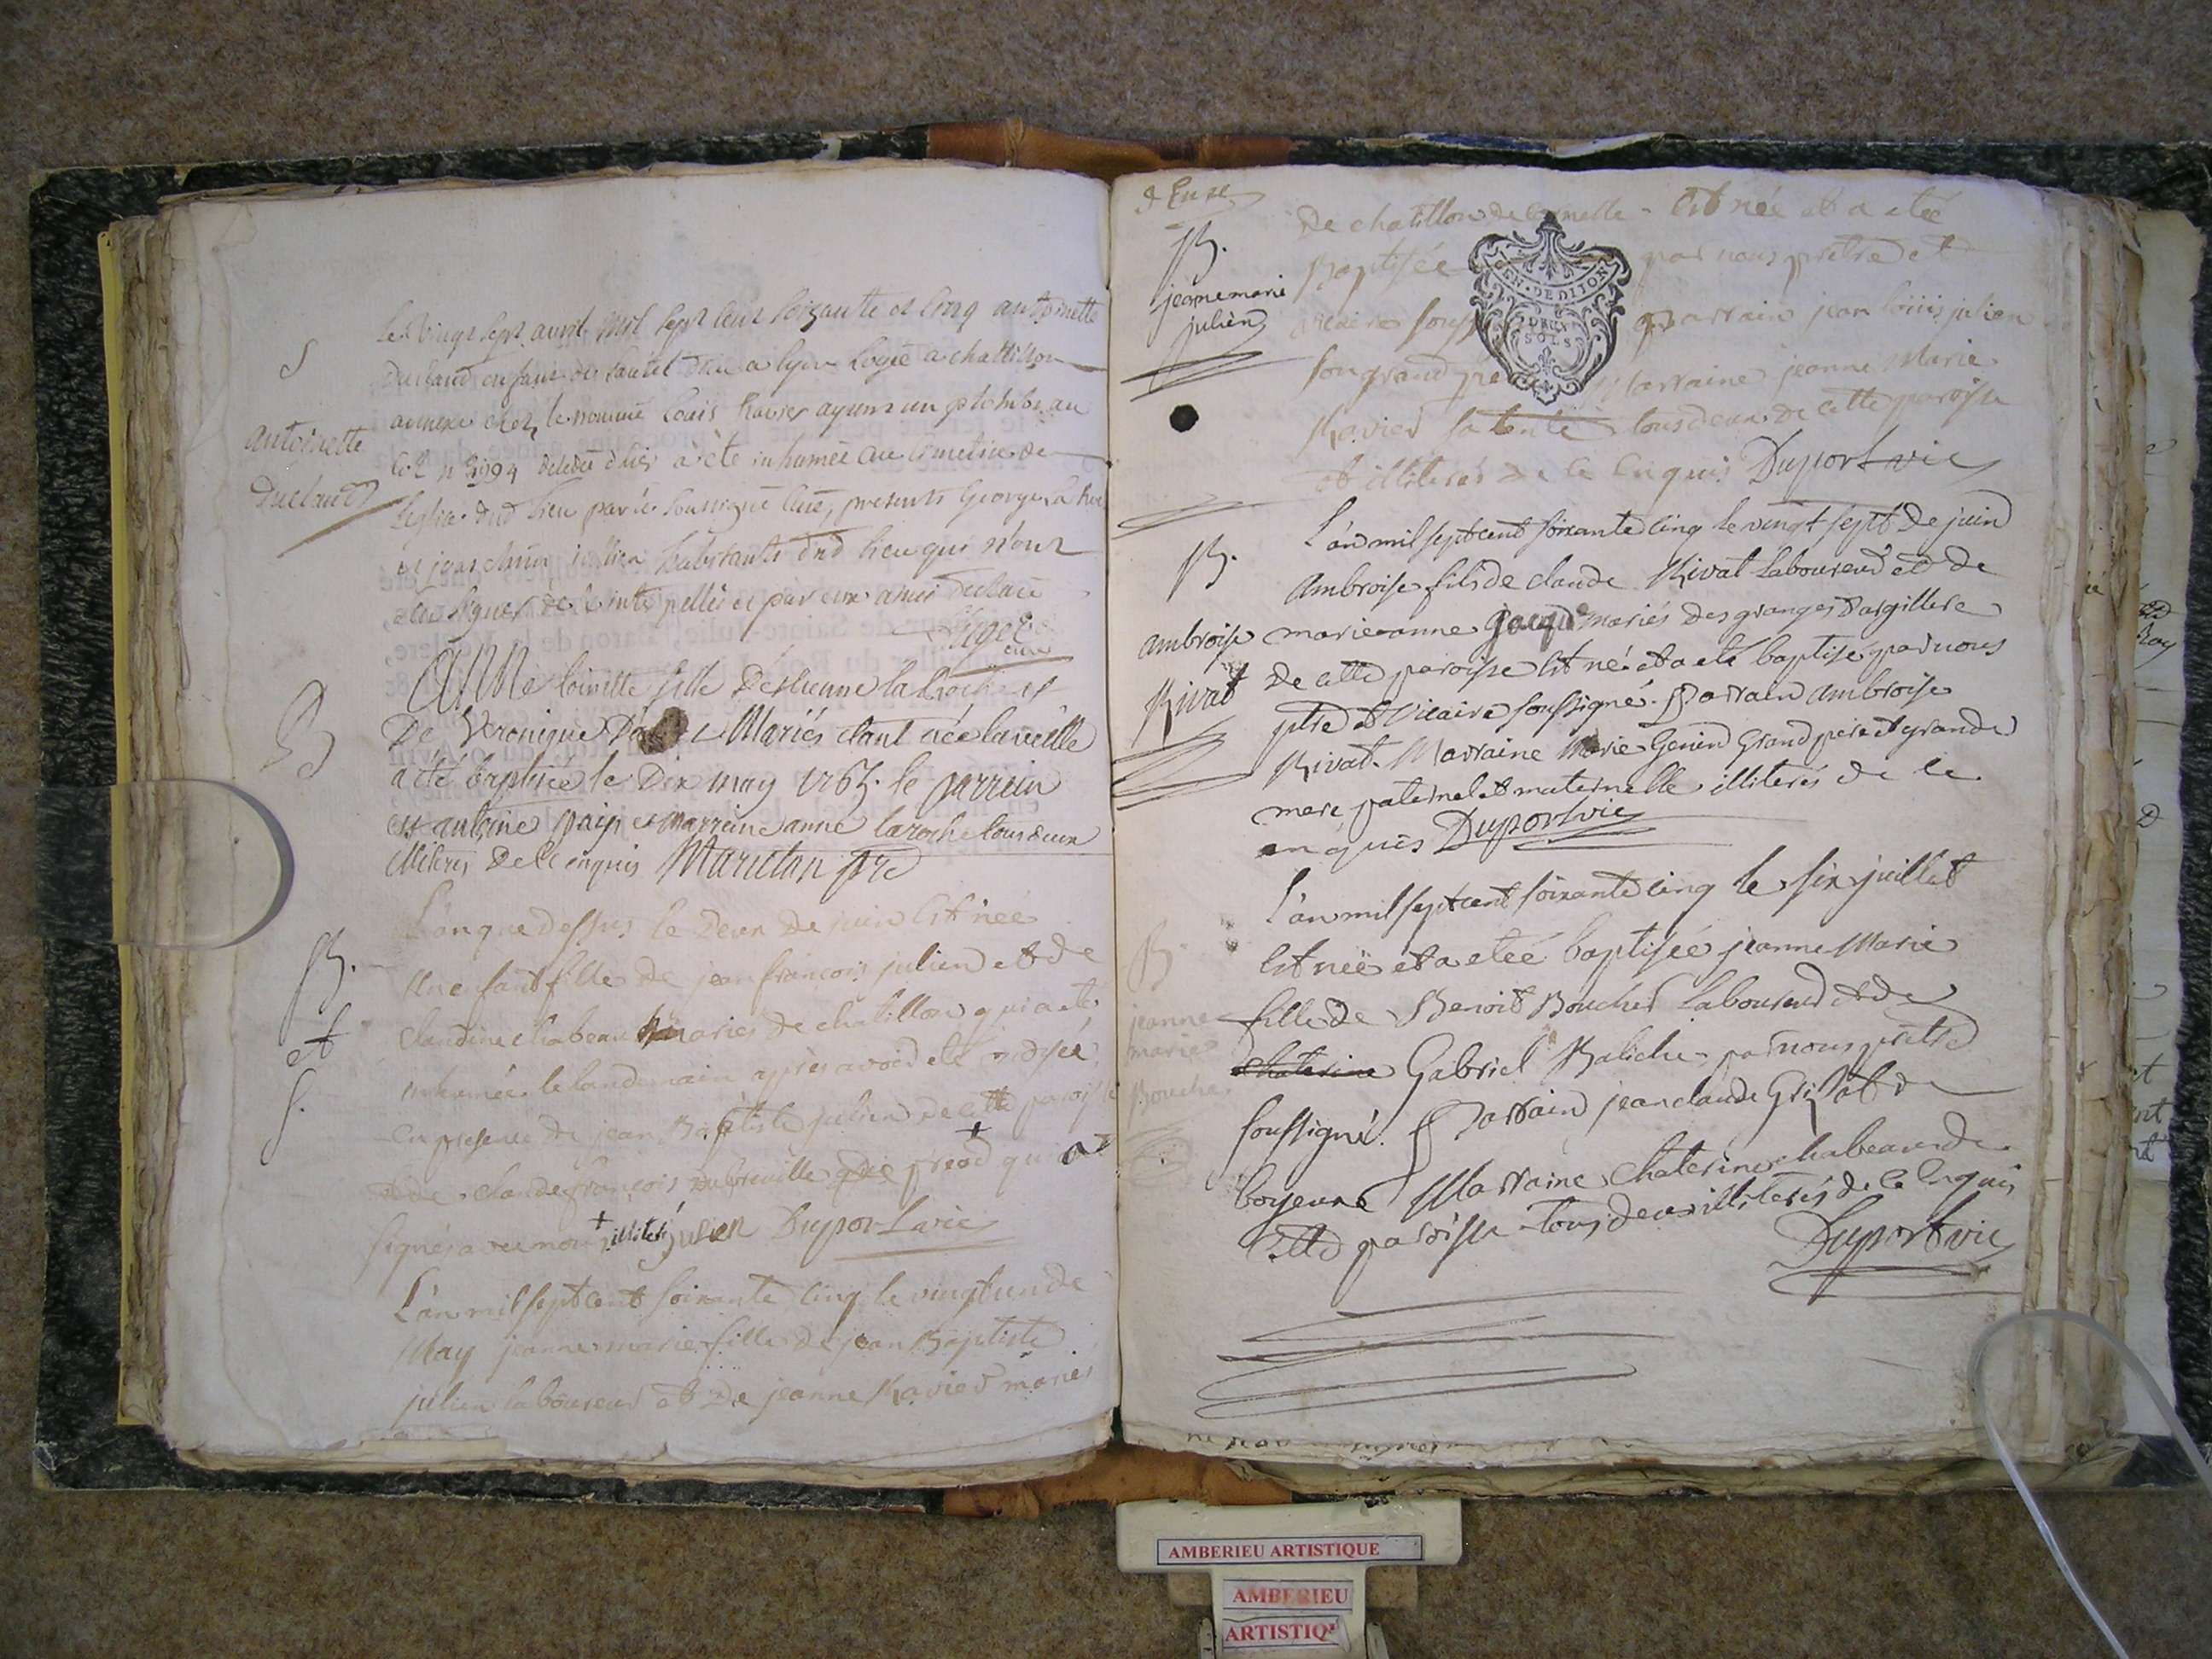 S
antoinette
Duclaud
le vingt sept avril mil sept cent soixante et cinq antoinette
Duclaud enfant de lautel dieu a lyon logée a chattillon
annexe chez le nommé Louis Ravier ayant un plomb au
col n 3994 décédée d'hier a été inhumée au cimetiere de
leglise dud lieu par le soussigné curé, presents George
et joachim julien habitants dud lieu qui n'ont
sceu signer de ce interpellés et par eux ainsi declaré
curé
B
Anne fille Destienne laroche et
De Veronique Mariés etant née la veille
a été baptisée le Dix may 1765. le parrein
est antoine païs et marreine anne laroche tous deux
illiterés De ce enquis Marictan ptre
B.
et
S.
L'an que dessus le Deux de juin Est née
un enfant fille de jean francois julien et de
Claudine chabeau mariés de chatillon qui a eté
inhumée le landemain après avoir eté ondisée
en presence de jean Baptiste julien de cette paroisse
et de claude francois qui a
signés avec nous + illiteré julien Duport vic
L'an mil sept cent soixante cinq le vingt un de
May jeanne marie fille de jean Baptiste
julien laboureur et De jeanne Ravier mariés
B.
jeanne marie
julien
De chatillon de Cornelle - Est née et a etée
Baptisée par nous prêtre et
vicaire souss parrain jean loüis julien
son grand pere Marraine jeanne Marie
Ravier sa tente tous deux de cette paroisse
et illiterés de ce Enquis Duport vic
B.
ambroise
Rivat
L'an mil sept cent soixante cinq le vingt sept De juin
Ambroise fils de claude Rivat laboureur et de
marieanne mariés des granges d'argillere
De cette paroisse Est né et a eté baptisé par nous
ptre et Vicaire soussigné. Parrain ambroise
Rivat. Marraine Marie Genin grand pere et grande
mere paternel et maternelle illiterés de ce
enquis Duport vic
B.
jeanne
marie
Bouche
L'an mil sept cent soixante cinq le six juillet
Est née et a etée baptisée jeanne Marie
fille de Benoit Boucher laboureur et de
Chaterine Gabriel Baliche par nous prêtre
soussigné. Parrain jean claude Grisat de
boyeux Marraine Chaterine chabeau de
cette paroisse tous deux illiterés de ce Enquis
Duport vic
GEN. DE DIJON
DEUX
SOLS
AMBERIEU ARTISTIQUE
AMBERIEU
ARTISTIQ